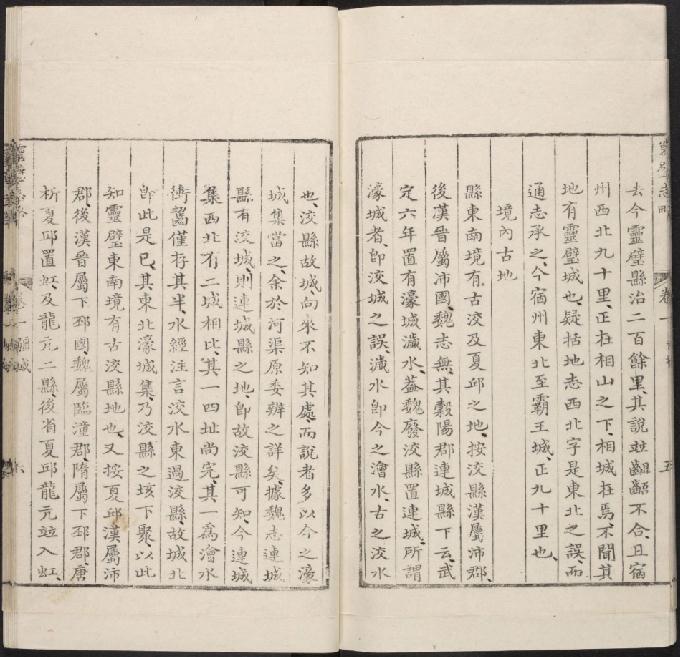 去今靈璧縣治二百餘里其說並齟齬不合且宿
州西北九十里正在相山之下相城在焉不聞其
地有靈璧城也疑括地志西北字是東北之誤而
通志承之今宿州東北至霸王城正九十里也
境內古地
縣東南境有古洨及夏邱之地按洨縣漢屬沛郡
後漢晉屬沛國魏志無其穀陽郡連城縣下云武
定六年置有濠城濊水蓋魏廢洨縣置連城所謂
濠城者卽洨城之誤濊水卽今之澮水古之洨水
也洨縣故城向來不知其處而說者多以今之濠
城集當之余於河渠原委辨之詳矣據魏志連城
縣有洨城則連城縣之地卽故洨縣可知今連城
集西北有二城相比其一四址尚完其一爲澮水
衝齧僅存其半水經注言洨水東過洨縣故城北
卽此是已其東北濠城集乃洨縣之垓下聚以此
知靈璧東南境有古洨縣地也又按夏邱漢屬沛
郡後漢晉屬下邳國魏屬臨潼郡隋屬下邳郡唐
析夏邱置虹及龍亢二縣後省夏邱龍亢竝入虹
靈璧志略
卷一
五